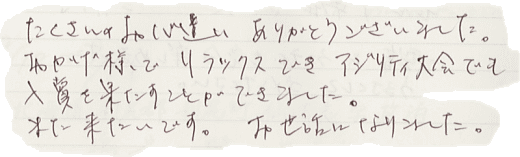 たくさんのお心遣い ありがとうございました。
おかげ様で リラックスでき アジリティ大会でも
入賞を果たすことができました。
また来たいです。 お世話になりました。